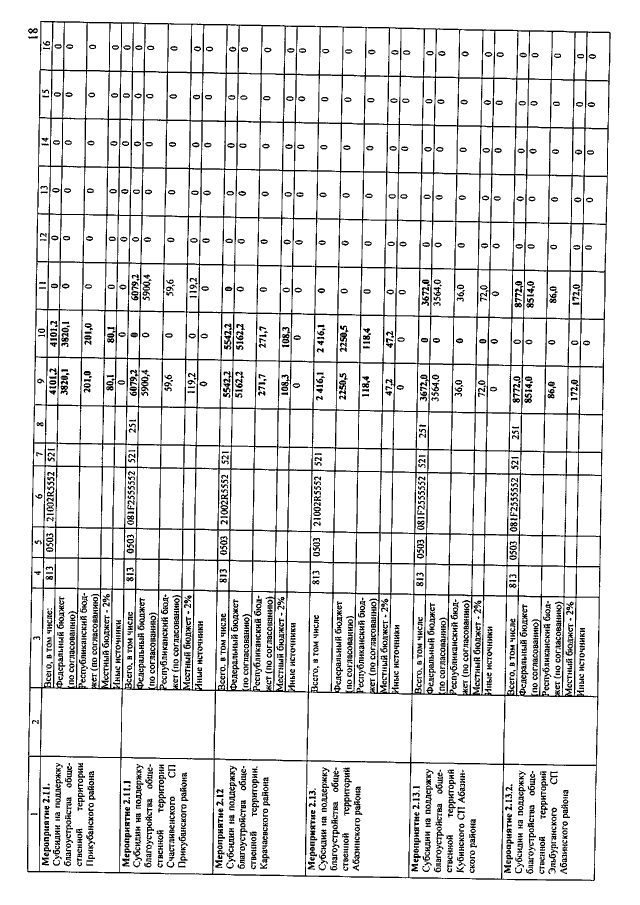 18
1 2 3 4 5 6 7 8 9 10 11 12 13 14 15 16
Мероприятие 2.11. Всего, в том числе: 813 0503 21002R5552 521 4101,2 4101,2 0 0 0 0 0 0
Субсидии на поддержку Федеральный бюджет 3820,1 3820,1 0 0 0 0 0 0
благоустройства обще- (по согласованию)
ственной территории Республиканский бюд- 201,0 201,0 0 0 0 0 0 0
Прикубанского района жет (по согласованию)
Местный бюджет - 2% 80,1 80,1 0 0 0 0 0 0
Иные источники 0 0 0 0 0 0 0 0
Мероприятие 2.11.1 Всего, в том числе 813 0503 081F2555552 521 251 6079,2 0 6079,2 0 0 0 0 0
Субсидии на поддержку Федеральный бюджет 5900,4 0 5900,4 0 0 0 0 0
благоустройства обще- (по согласованию)
ственной территории Республиканский бюд- 59,6 0 59,6 0 0 0 0 0
Счастливенского СП жет (по согласованию)
Прикубанского района Местный бюджет - 2% 119,2 0 119,2 0 0 0 0 0
Иные источники 0 0 0 0 0 0 0 0
Мероприятие 2.12 Всего, в том числе 813 0503 21002R5552 521 5542,2 5542,2 0 0 0 0 0 0
Субсидии на поддержку Федеральный бюджет 5162,2 5162,2 0 0 0 0 0 0
благоустройства обще- (по согласованию)
ственной территории. Республиканский бюд- 271,7 271,7 0 0 0 0 0 0
Карачаевского района жет (по согласованию)
Местный бюджет - 2% 108,3 108,3 0 0 0 0 0 0
Иные источники 0 0 0 0 0 0 0 0
Мероприятие 2.13. Всего, в том числе 813 0503 21002R5552 521 2 416,1 2 416,1 0 0 0 0 0 0
Субсидии на поддержку Федеральный бюджет 2250,5 2250,5 0 0 0 0 0 0
благоустройства обще- (по согласованию)
ственной территорий Республиканский бюд- 118,4 118,4 0 0 0 0 0 0
Абазинского района жет (по согласованию)
Местный бюджет - 2% 47,2 47,2 0 0 0 0 0 0
Иные источники 0 0 0 0 0 0 0 0
Мероприятие 2.13.1 Всего, в том числе 813 0503 081F2555552 521 251 3672,0 0 3672,0 0 0 0 0 0
Субсидии на поддержку Федеральный бюджет 3564,0 0 3564,0 0 0 0 0 0
благоустройства обще- (по согласованию)
ственной территорий Республиканский бюд- 36,0 0 36,0 0 0 0 0 0
Кубинского СП Абазин- жет (по согласованию)
ского района Местный бюджет - 2% 72,0 0 72,0 0 0 0 0 0
Иные источники 0 0 0 0 0 0 0 0
Мероприятие 2.13.2. Всего, в том числе 813 0503 081F2555552 521 251 8772,0 0 8772,0 0 0 0 0 0
Субсидии на поддержку Федеральный бюджет 8514,0 0 8514,0 0 0 0 0 0
благоустройства обще- (по согласованию)
ственной территорий Республиканский бюд- 86,0 0 86,0 0 0 0 0 0
Эльбурганского СП жет (по согласованию)
Абазинского района Местный бюджет - 2% 172,0 0 172,0 0 0 0 0 0
Иные источники 0 0 0 0 0 0